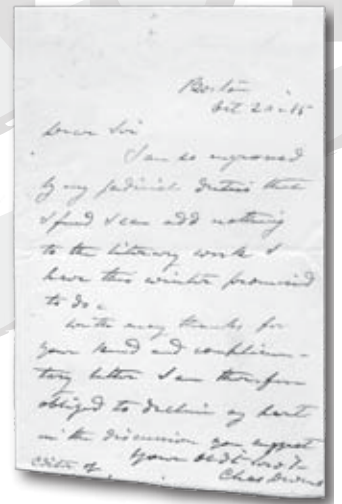 Boston
Oct 20
Dear Sir
I am so engrossed
by my judicial duties that
I find I can add nothing
to the literary work I
have this winter promised
to do.
With many thanks for
your kind and complimen-
tary letter I am therefore
obliged to decline my part
in the discussion you suggest
Yours
Editor of
Chas Devens